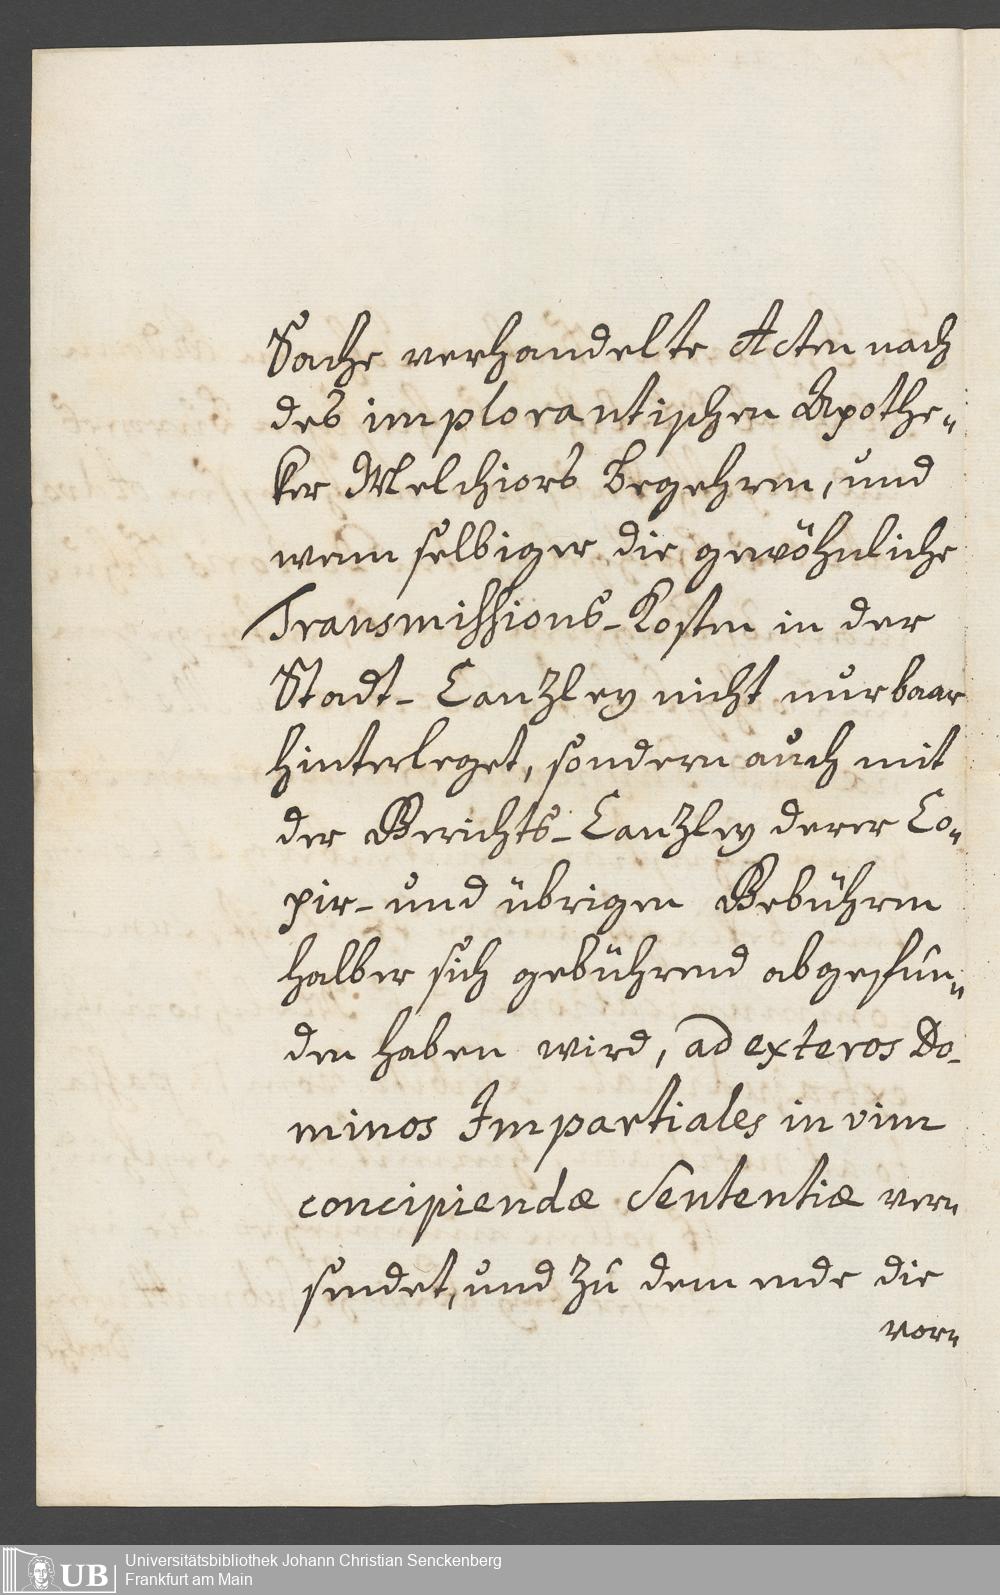 Sache verhandelte Acten nach
des implorantischen Apothe„
ker Melchiors Begehren, und
wenn selbiger die gewöhnliche
Transmissions-Kosten in der
Stadt-Canzley nicht nur baar
hinterleget, sondern auch mit
der Gerichts-Canzley derer Co„
pir- und übrigen Gebühren
halber sich gebührend abgefun„
den haben wird, ad exteros Do-
minos Impartiales in vim
concipiendæ Sententiæ ver„
sendet, und zu dem ende die
vor„
UB
Universitätsbibliothek Johann Christian Senckenberg
Frankfurt am Main